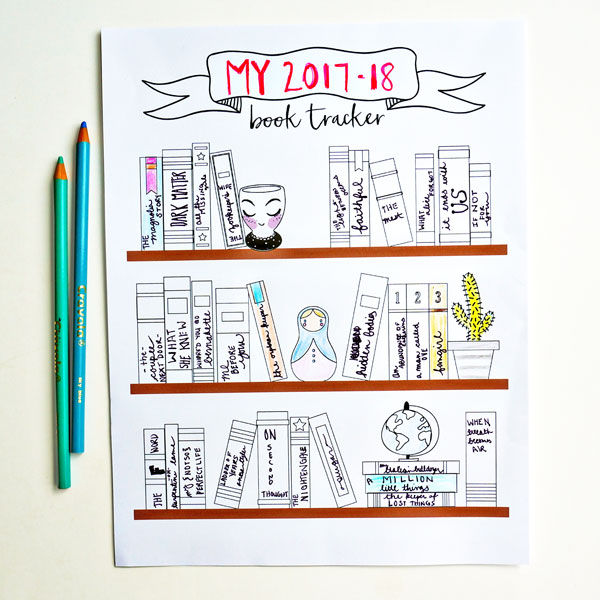 MY 2017-18
book tracker
THE magnolia STORY
DARK MATTER
all the MISSING girls
THE zookeepers WIFE
faithful
THE nest
WHAT alice FORGOT
it ends with US
IF NOT FOR you
the couple NEXT DOOR
WHAT SHE KNEW
WHERE'D YOU GO bernadette
ME BEFORE you
the orphan keeper
hidden bodies
1 2 3
AN ABUNDANCE OF katherines
a man called OVE
fangirl
THE F WORD
serpentine lane
my (NOT SO) PERFECT LIFE
ON SECOND THOUGHT
THE NIGHTENGALE
A MILLION
little things
the keeper of
LOST THINGS
WHEN
breath
becomes
AIR
Crayola